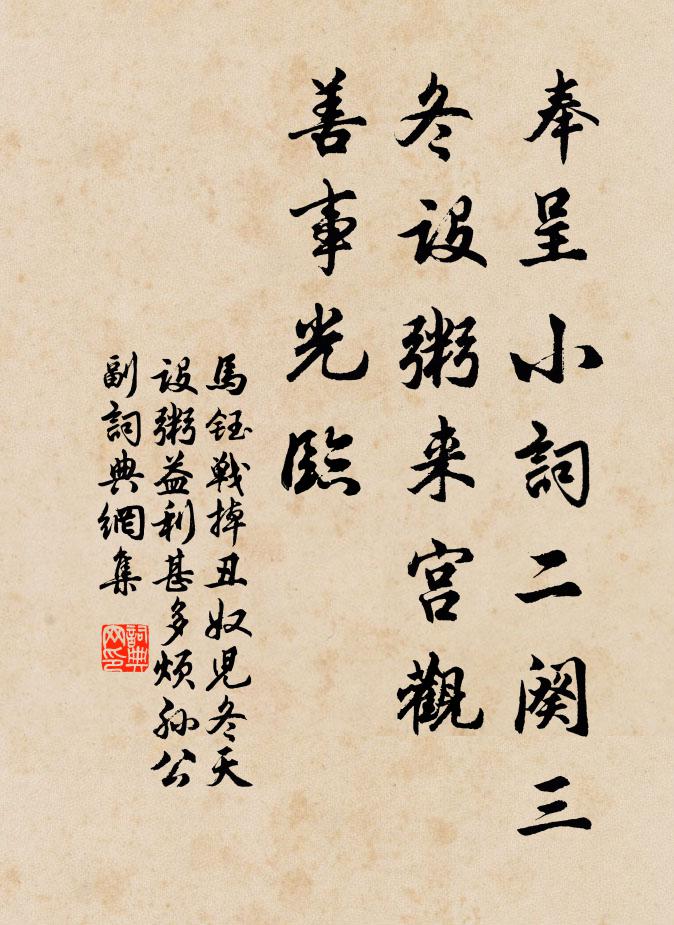 奉呈小詞二阕三
冬設粥来宫觀
善事光臨
馬鈺戰掉丑奴児冬天
設粥益利甚多煩孙公
副詞典網集
詞典
网印